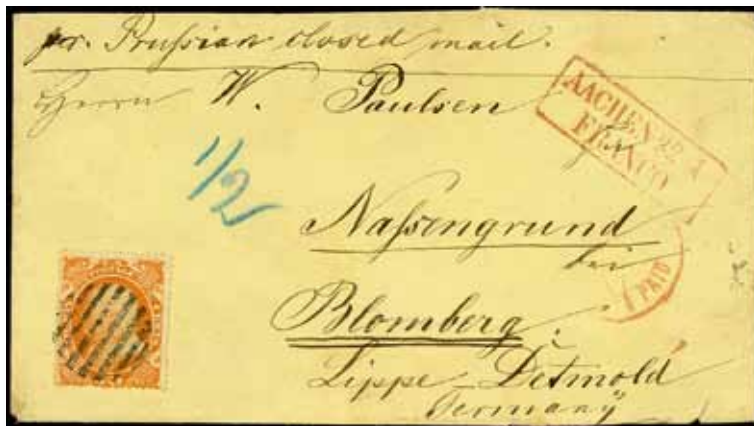 pr. Prußian closed mail.
Herrn W. Paulsen
AACHEN 22 4
FRANCO
in
1/2
Naßengrund
bei
PAID
Blomberg.
Lippe-Detmold
Germany